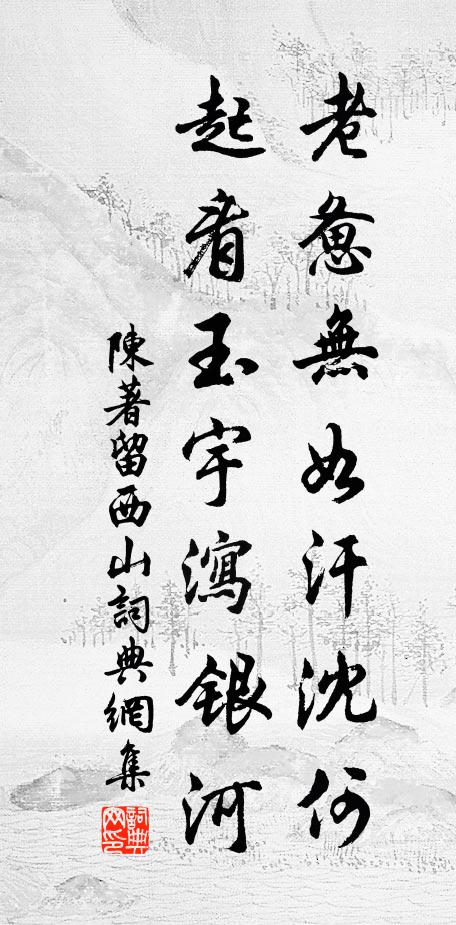 老惫無如汗沈何
起看玉宇瀉銀河
陳著留西山詞典網集
詞典网印